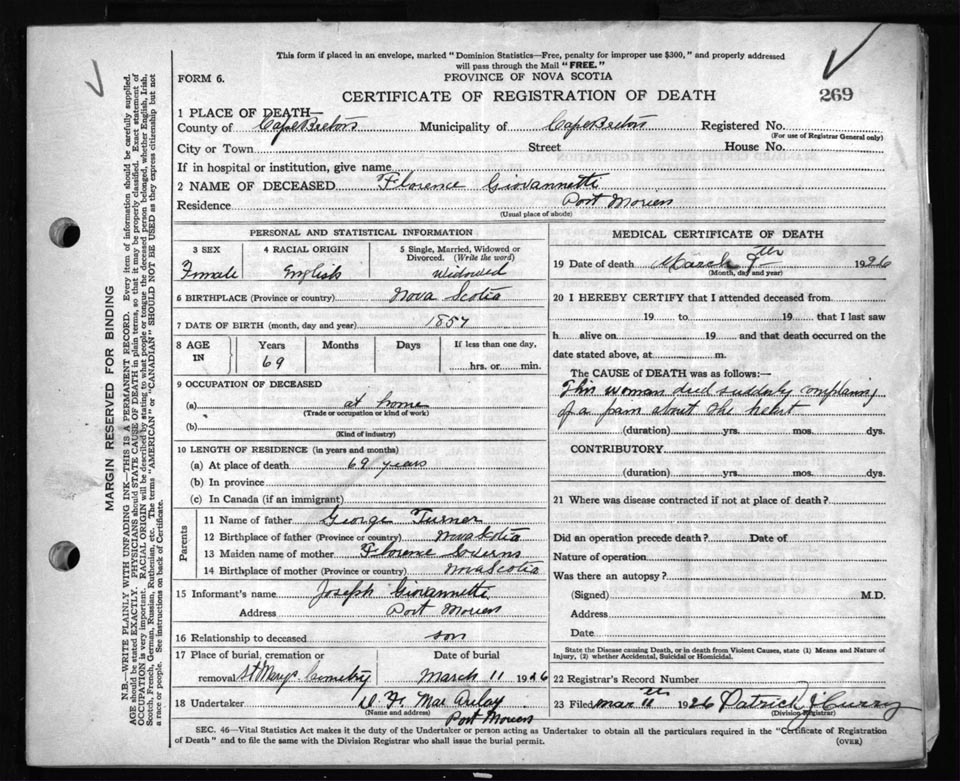 This form if placed in an envelope, marked "Dominion Statistics—Free, penalty for improper use $300," and properly addressed
will pass through the Mail "FREE."
FORM 6.
PROVINCE OF NOVA SCOTIA
CERTIFICATE OF REGISTRATION OF DEATH
269
1 PLACE OF DEATH—
County of Cape Breton Municipality of Cape Breton Registered No.
(For use of Registrar General only)
City or Town Street House No.
If in hospital or institution, give name
2 NAME OF DECEASED Florence Giovannetti
Residence Port Morien
(Usual place of abode)
PERSONAL AND STATISTICAL INFORMATION
3 SEX 4 RACIAL ORIGIN 5 Single, Married, Widowed or
Divorced. (Write the word)
Female English Widowed
6 BIRTHPLACE (Province or country) Nova Scotia
7 DATE OF BIRTH (month, day and year) 1857
8 AGE IN Years Months Days If less than one day,
69 hrs. or min.
9 OCCUPATION OF DECEASED
(a) at home
(Trade or occupation or kind of work)
(b)
(Kind of industry)
10 LENGTH OF RESIDENCE (in years and months)
(a) At place of death 69 years
(b) In province
(c) In Canada (if an immigrant)
Parents
11 Name of father George Turner
12 Birthplace of father (Province or country) Nova Scotia
13 Maiden name of mother Florence
14 Birthplace of mother (Province or country) Nova Scotia
15 Informant's name Joseph Giovannetti
Address Port Morien
16 Relationship to deceased son
17 Place of burial, cremation or Date of burial
removal St Marys Cemetry March 11 1926
18 Undertaker D. F. Mac Aulay
(Name and address)
Port Morien
MEDICAL CERTIFICATE OF DEATH
19 Date of death March 9th 1926
(Month, day and year)
20 I HEREBY CERTIFY that I attended deceased from
19 to 19 that I last saw
h alive on 19 and that death occurred on the
date stated above, at m.
The CAUSE of DEATH was as follows:—
This woman died suddenly complaining
of a pain about the heart
(duration) yrs. mos. dys.
CONTRIBUTORY
(duration) yrs. mos. dys.
21 Where was disease contracted if not at place of death?
Did an operation precede death? Date of
Nature of operation
Was there an autopsy?
(Signed) M.D.
Address
Date
State the Disease causing Death, or in death from Violent Causes, state (1) Means and Nature of
Injury, (2) whether Accidental, Suicidal or Homicidal.
22 Registrar's Record Number
23 Filed Mar 11th 1926 Patrick J Curry
(Division Registrar)
SEC. 46—Vital Statistics Act makes it the duty of the Undertaker or person acting as Undertaker to obtain all the particulars required in the "Certificate of Registration
of Death" and to file the same with the Division Registrar who shall issue the burial permit. (OVER)
MARGIN RESERVED FOR BINDING
N.B.—WRITE PLAINLY WITH UNFADING INK—THIS IS A PERMANENT RECORD. Every item of information should be carefully supplied.
AGE should be stated EXACTLY. PHYSICIANS should STATE CAUSE OF DEATH in plain terms, so that it may be properly classified. Exact statement of
OCCUPATION is very important. RACIAL ORIGIN will be described by stating to what people or tongue the deceased person belonged, whether English, Irish,
Scotch, French, German, Russian, Ruthenian, etc. The terms "AMERICAN" or "CANADIAN" SHOULD NOT BE USED as they express citizenship but not
a race or people. See instructions on back of Certificate.